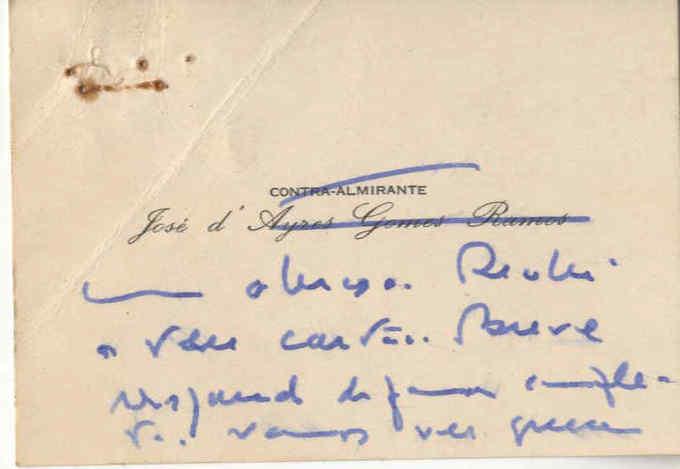 CONTRA-ALMIRANTE
José d' Ayres Gomes Ramos
um abraço. Recebi
o teu cartão. Breve
respond de forma comple-
ta. vamos ver